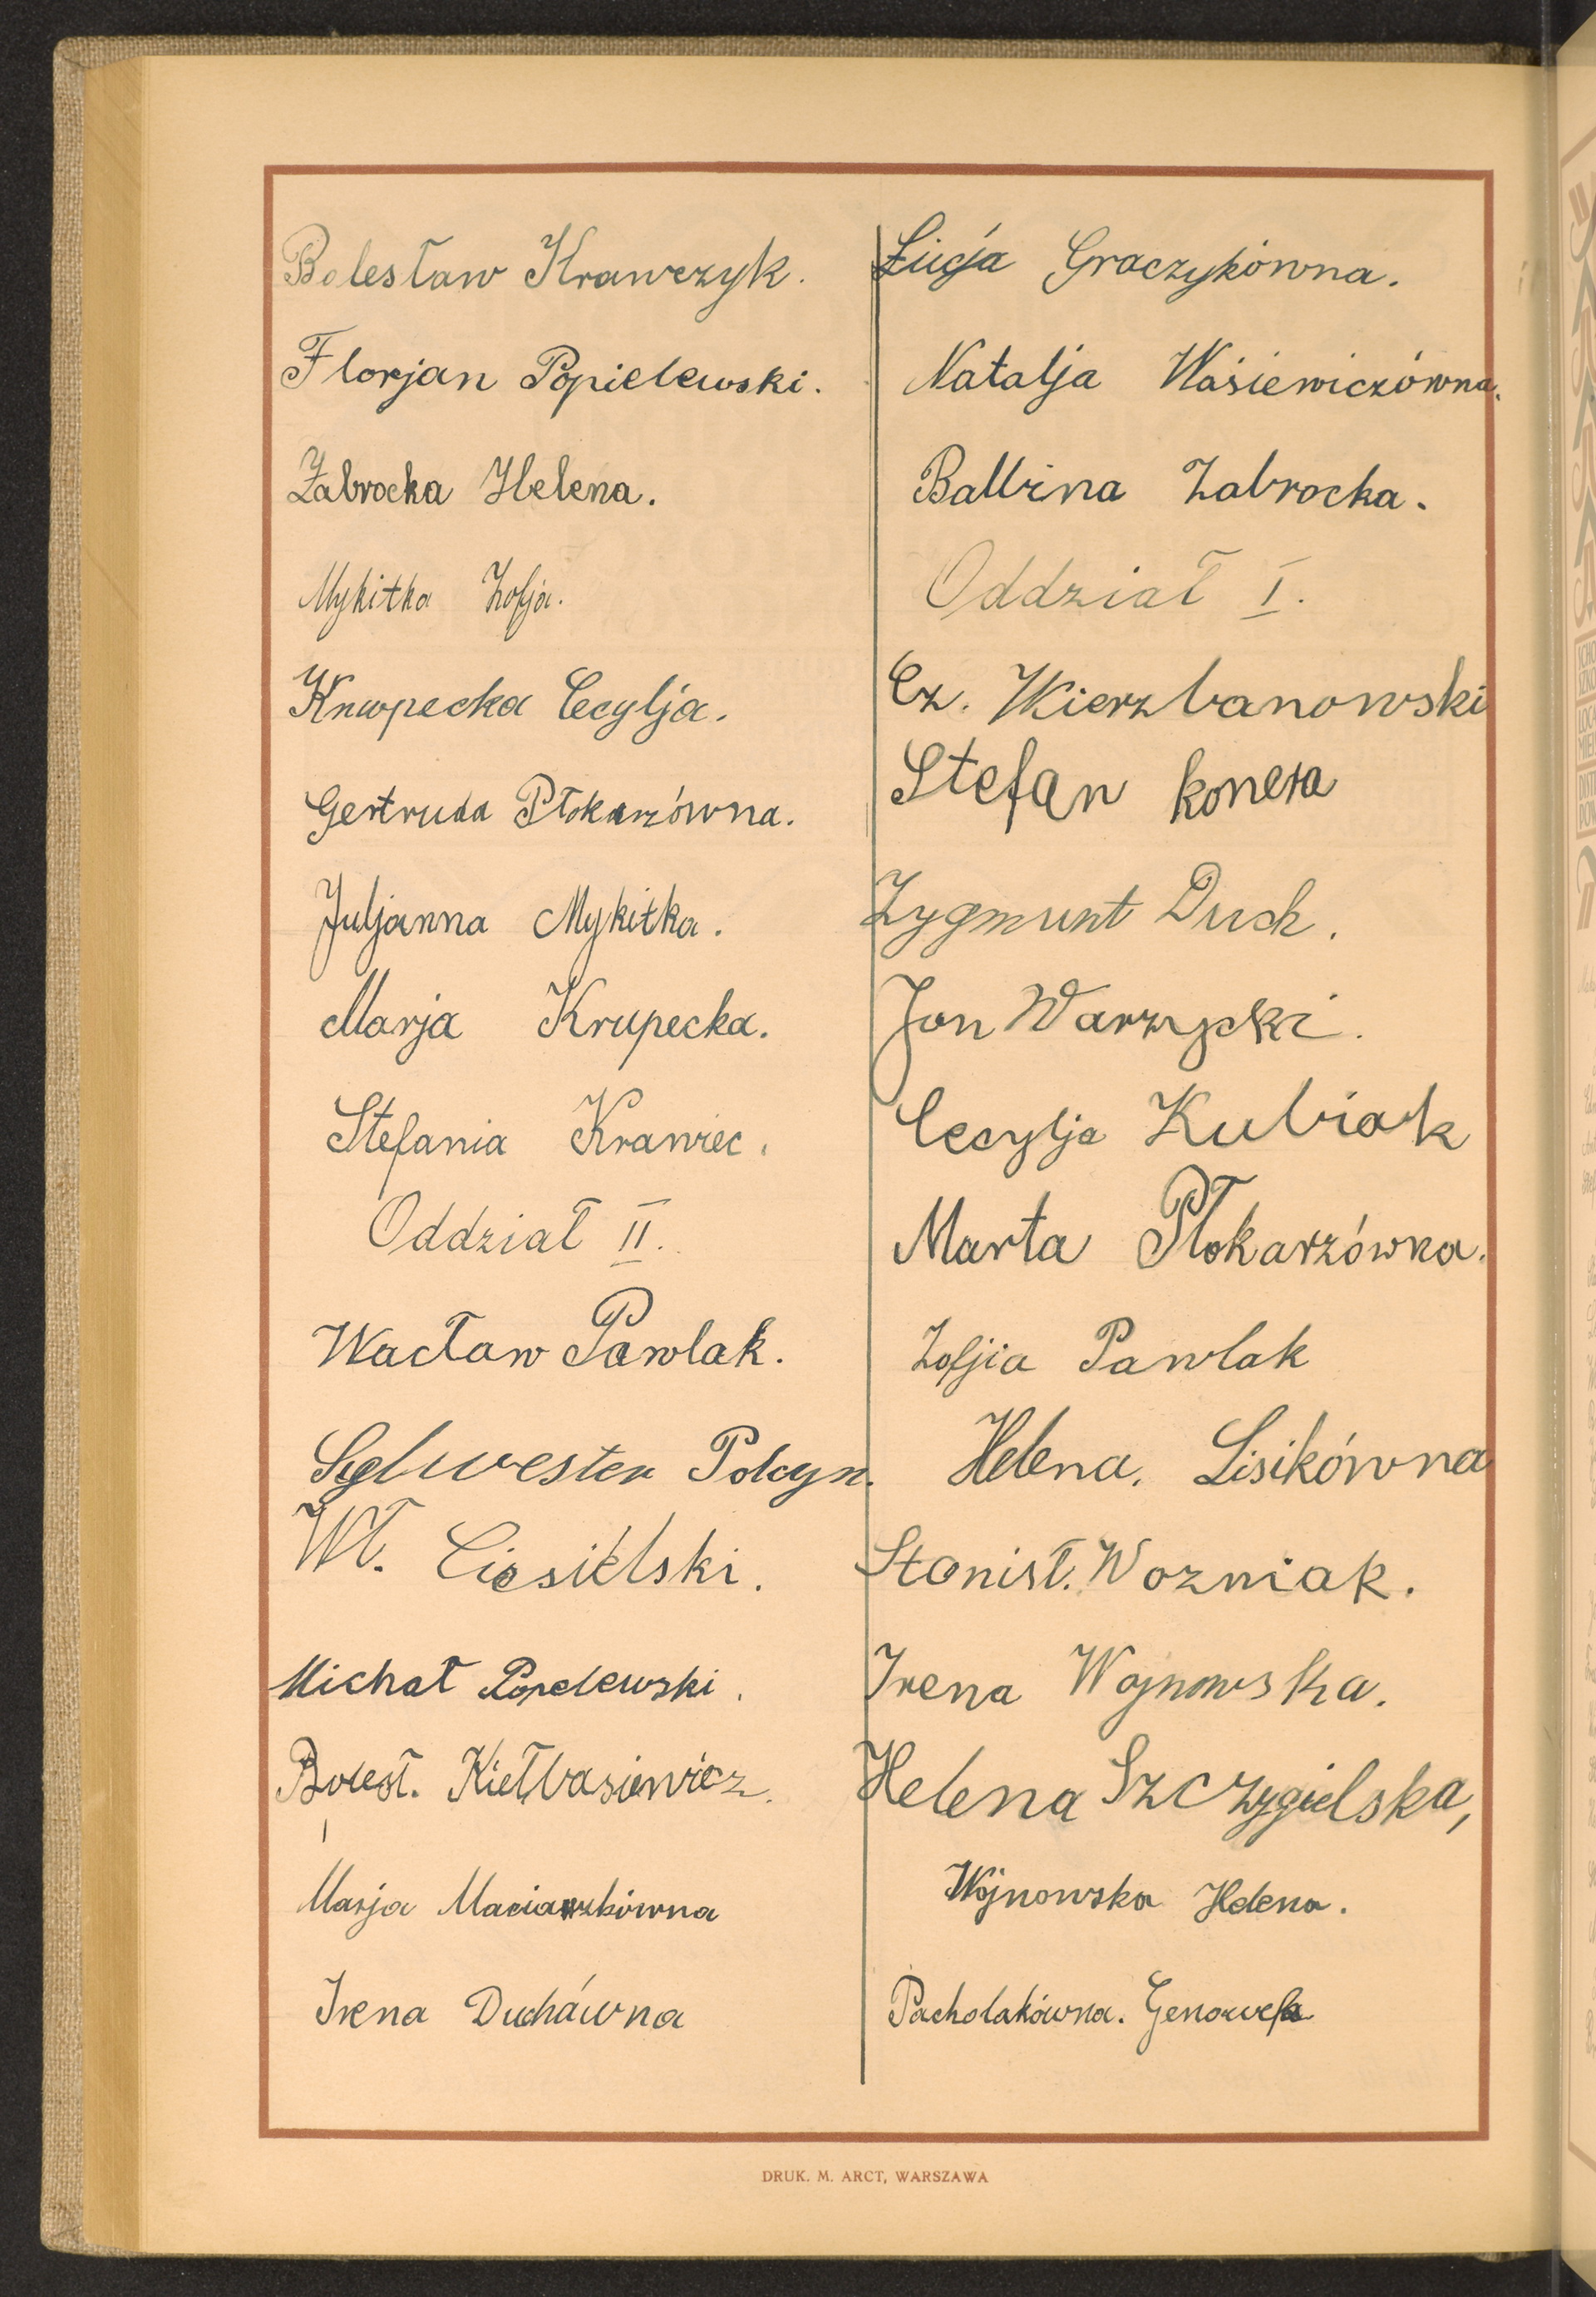 Bolesław Krawczyk.
Florjan Popielewski.
Zabrocka Helena.
Mykitka Zofja.
Krupecka Cecylja.
Gertruda Płokarzówna.
Juljanna Mykitka.
Marja Krupecka.
Stefania Krawiec.
Oddział II.
Wacław Pawlak.
Sylwester Polcyn.
Wł. Ciesielski.
Michał Popelewski.
Bolesł. Kiełbasiewicz.
Marja Maciaszkówna
Irena Duchówna
Łucja Graczykówna.
Natalja Wasiewiczówna.
Balbina Zabrocka.
Oddział I.
Cz. Wierzbanowski
Stefan konera
Zygmunt Duch.
Jan Warzycki.
Cecylja Kubiak
Marta Płokarzówna.
Zofjia Pawlak
Helena. Lisikówna
Stanisł. Wozniak.
Irena Wojnowska.
Helena Szczygielska,
Wojnowska Helena.
Pacholakówna. Genowefa
DRUK. M. ARCT, WARSZAWA